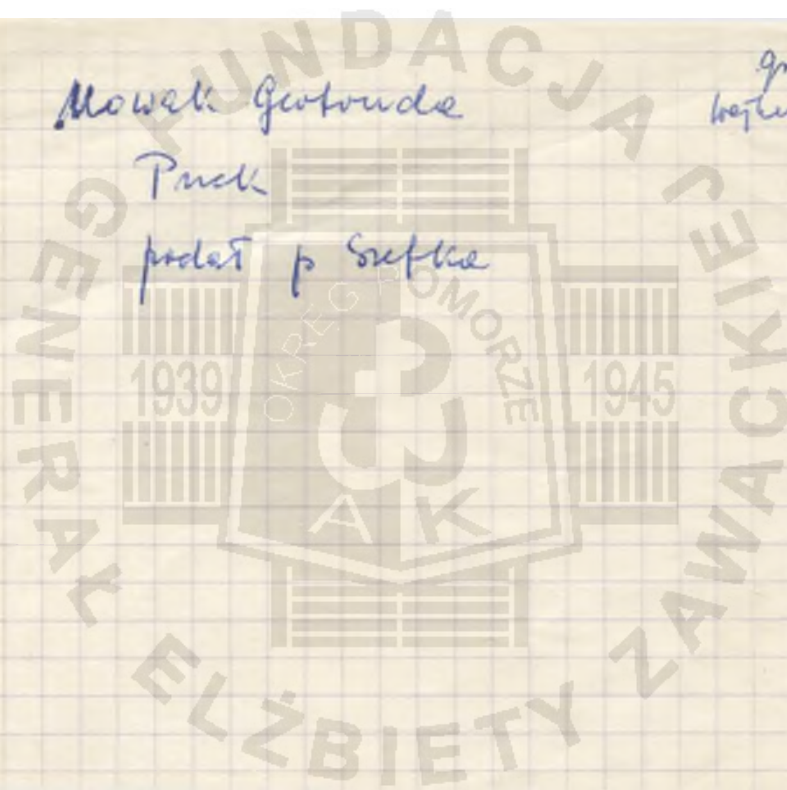 Nowak
Puck
podał p Szefka
FUNDACJA
GENERAŁ ELŻBIETY ZAWACKIEJ
OKRĘG POMORZE
1939
1945
AK